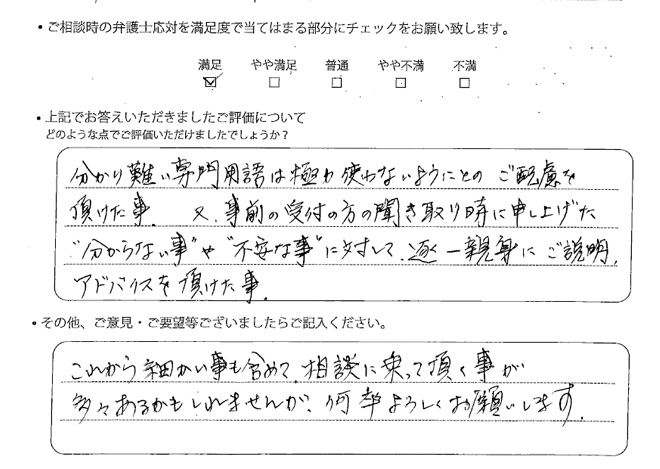 ・ご相談時の弁護士応対を満足度で当てはまる部分にチェックをお願い致します。
満足 やや満足 普通 やや不満 不満
・上記でお答えいただきましたご評価について
どのような点でご評価いただけましたでしょうか？
分かり難い専門用語は極力使わないようにとのご配慮を
頂けた事. 又、事前の受付の方の聞き取り時に申し上げた
"分からない事"や"不安な事"に対して、逐一親身にご説明、
アドバイスを頂けた事.
・その他、ご意見・ご要望等ございましたらご記入ください。
これから細かい事も含めて、相談に乗って頂く事が
多々あるかもしれませんが、何卒よろしくお願いします.